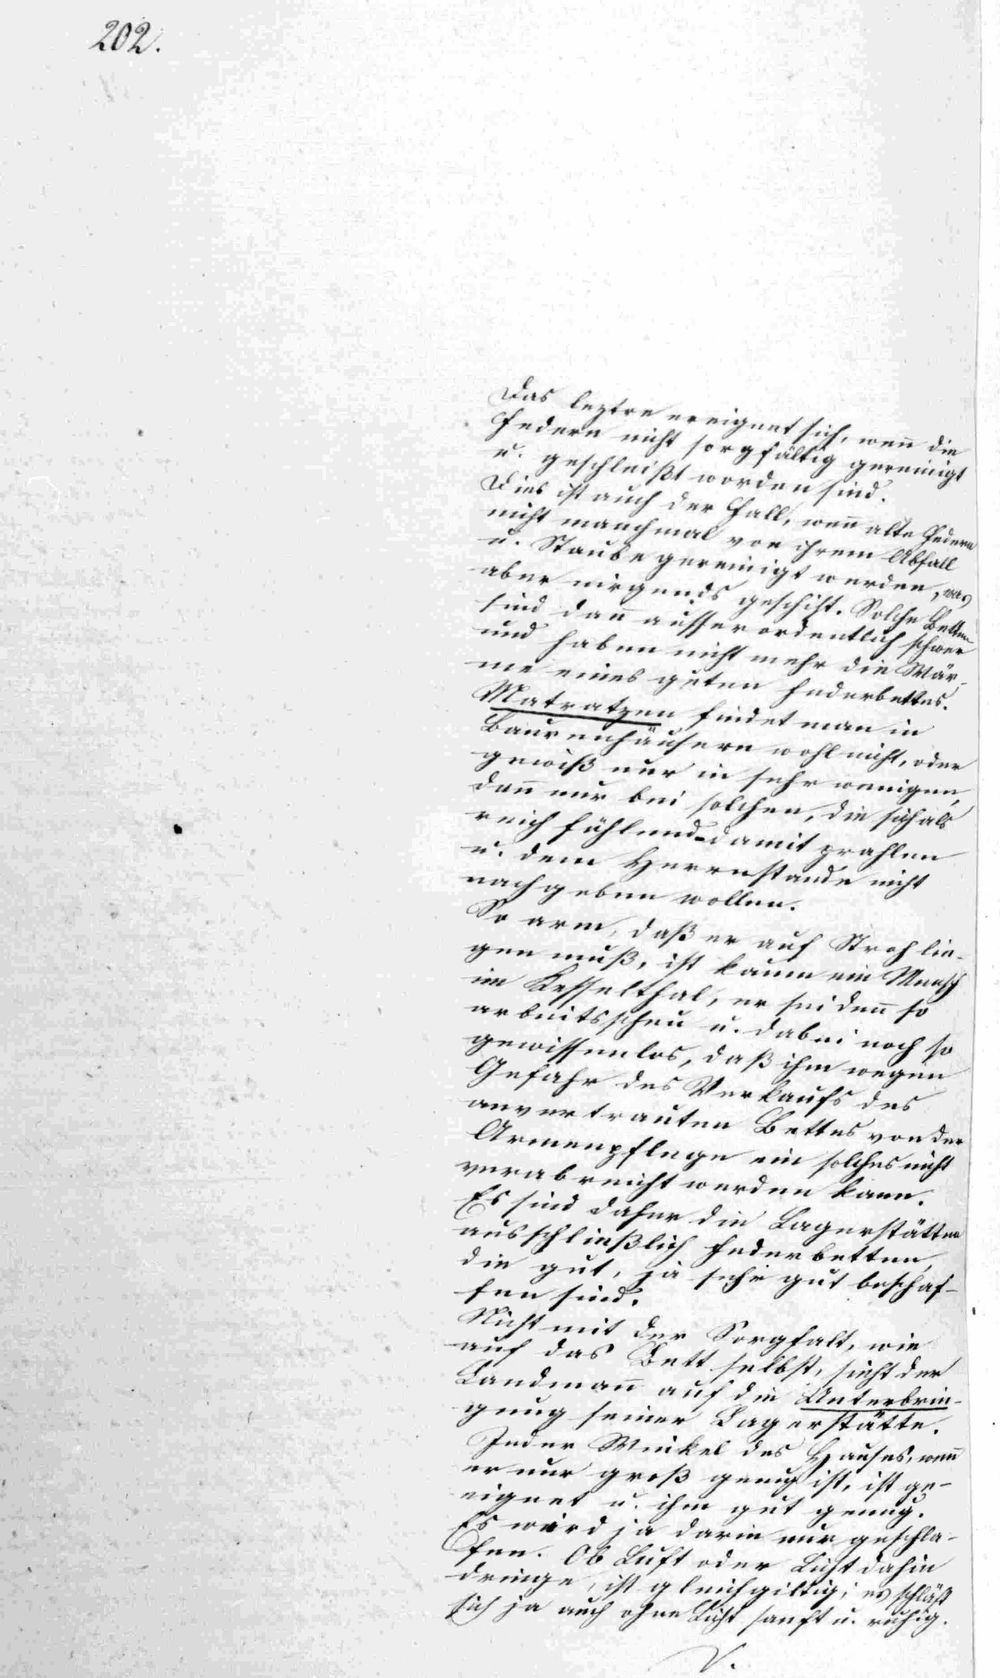 202.
Das leztre ereignet sich, wen̄ die
Federn nicht sorgfältig gereinigt
u. geschleißt worden sind.
Dies ist auch der Fall, wen̄ alte Federn
nicht manchmal von ihrem Abfall
u. Staube gereinigt werden, was
aber nirgends geschiht. Solche Betten
sind dan̄ ausserordentlich schwer
und haben nicht mehr die Wär-
me eines guten Federbettes.
Matratzen findet man in
Baurenhäusern wohl nicht, oder
gewiß nur in sehr wenigen,
dan̄ nur bei solchen, die sich als
reich fühlend damit prahlen
u. dem Herrnstande nicht
nachgeben wollen.
So arm, daß er auf Stroh lie-
gen muß, ist kaum ein Mensch
im Kesselthal, er sei den̄ so
arbeitsscheu u. dabei noch so
gewissenlos, daß ihm wegen
Gefahr des Verkaufs des
anvertrauten Bettes von der
Armenpflege ein solches nicht
verabreicht werden kann.
Es sind daher die Lagerstätten
ausschließlich Federbetten,
die gut, ja sehr gut beschaf-
fen sind.
Nicht mit der Sorgfalt, wie
auf das Bett selbst, sieht der
Landman̄ auf die Unterbrin-
gung seiner Lagerstätte.
Jeder Winkel des Hauses, wen̄
er nur groß genug ist, ist ge-
eignet u. ihm gut genug.
Es wird ja darin nur geschla-
fen. Ob Luft oder Licht dahin
dringe, ist gleichgiltig; es schläft
sich ja auch ohne Licht sanft u. ruhig.
V.